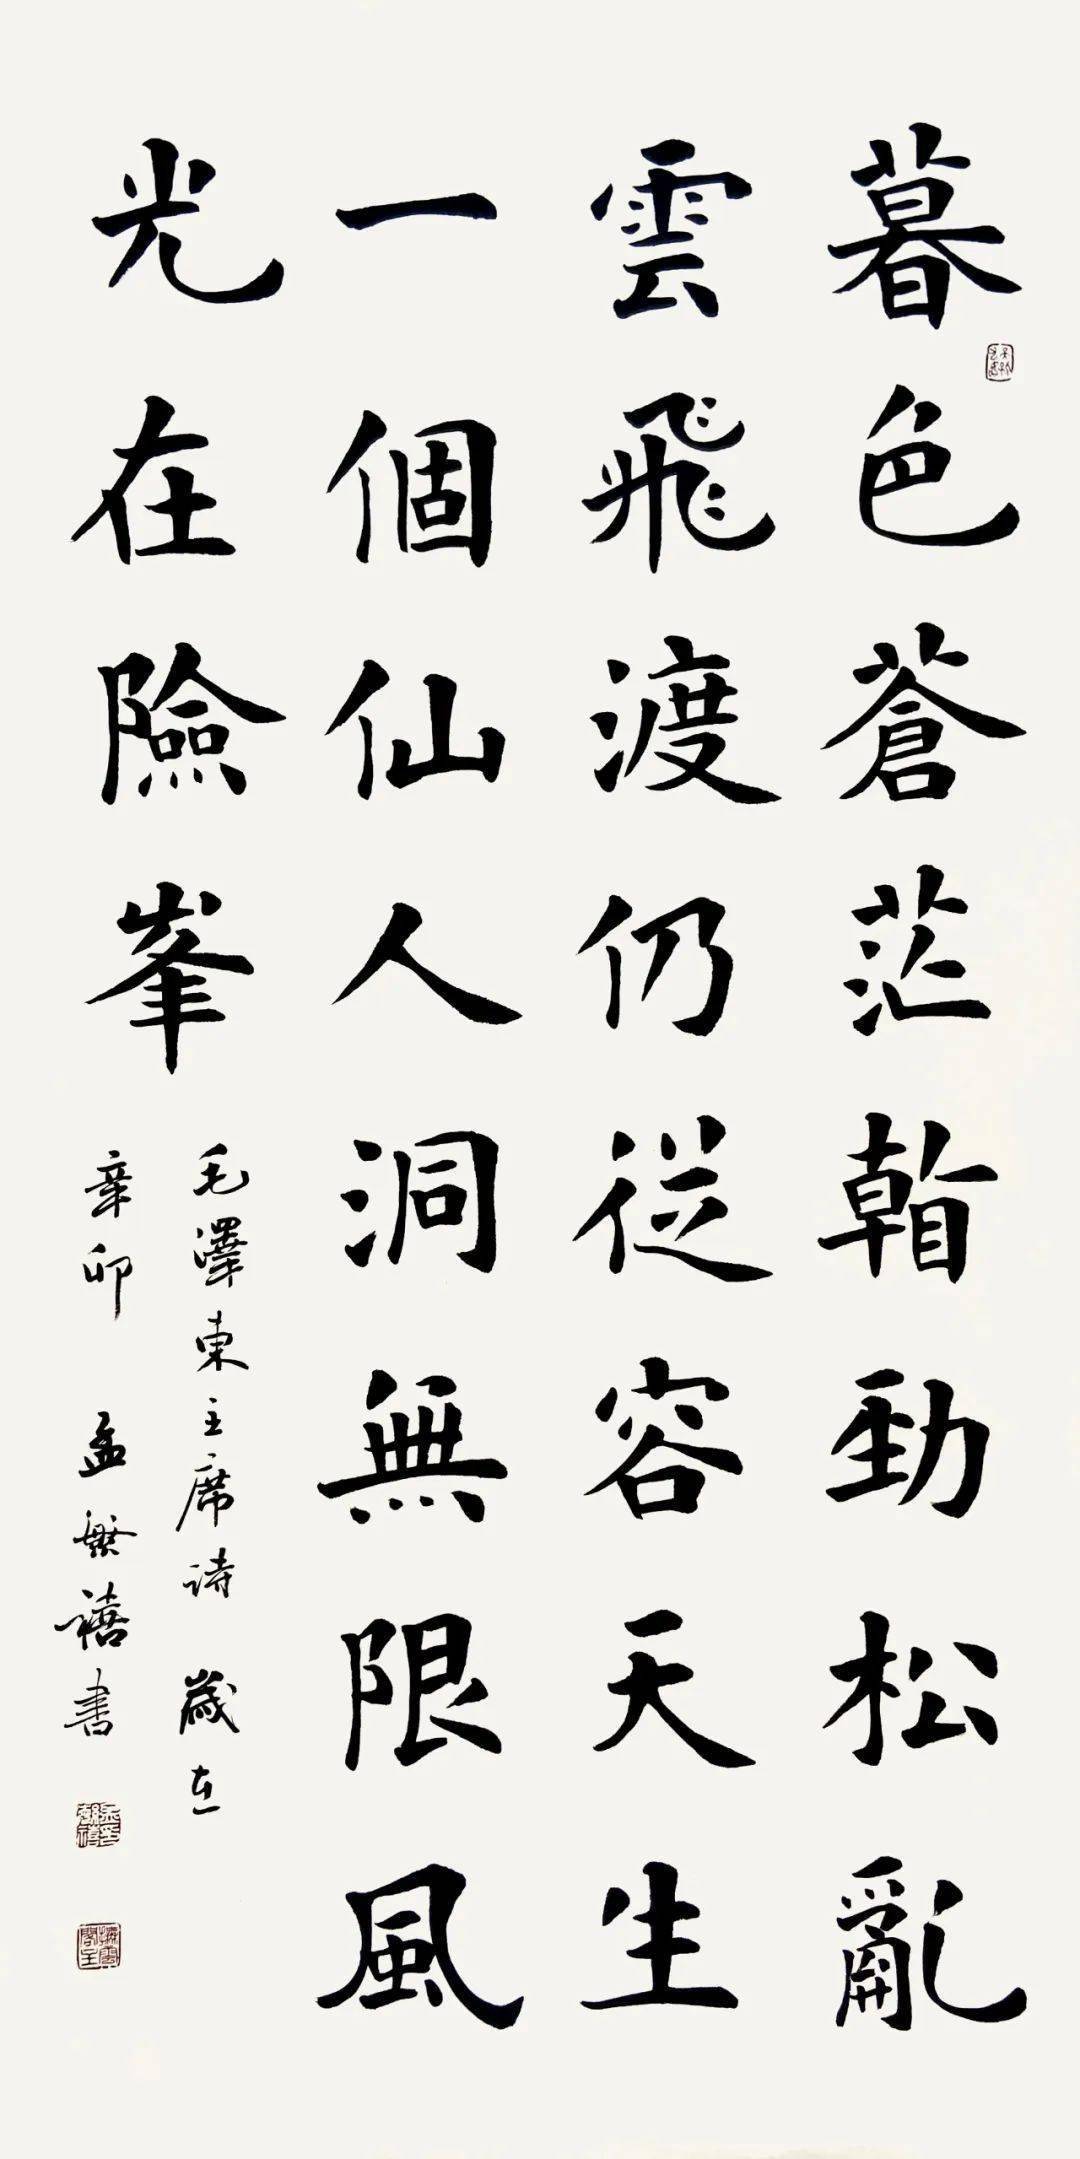 暮色蒼茫看勁松亂
雲飛渡仍從容天生
一個仙人洞無限風
光在險峯
毛澤東主席詩 歲在
辛卯 孟繁禧書